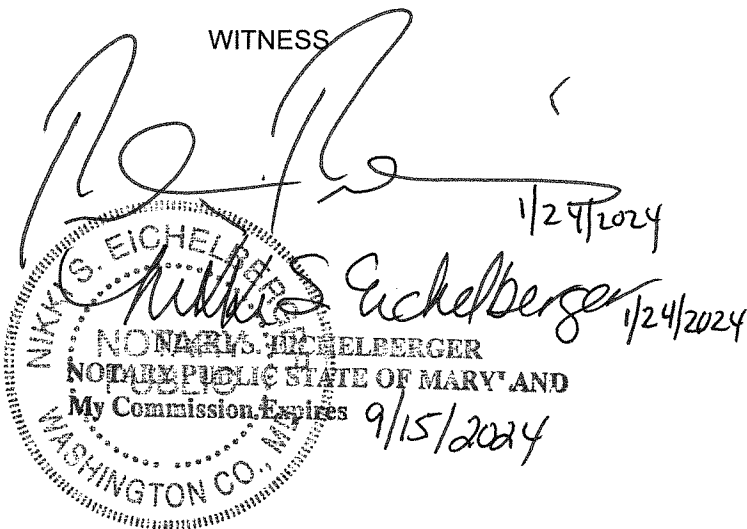 WITNESS
1/24/2024
Nikki S Eichelberger 1/24/2024
NIKKI S. EICHELBERGER
NOTARY PUBLIC
WASHINGTON CO., MD
NIKKI S. EICHELBERGER
NOTARY PUBLIC STATE OF MARY'AND
My Commission Expires 9/15/2024